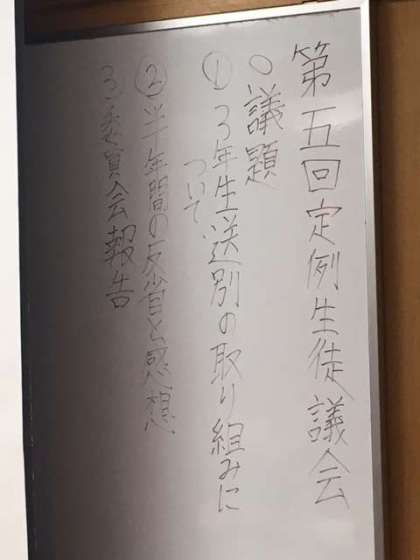 第五回定例生徒議会
○議題
①3年生送別の取り組みに
ついて
②半年間の反省と感想
③委員会報告